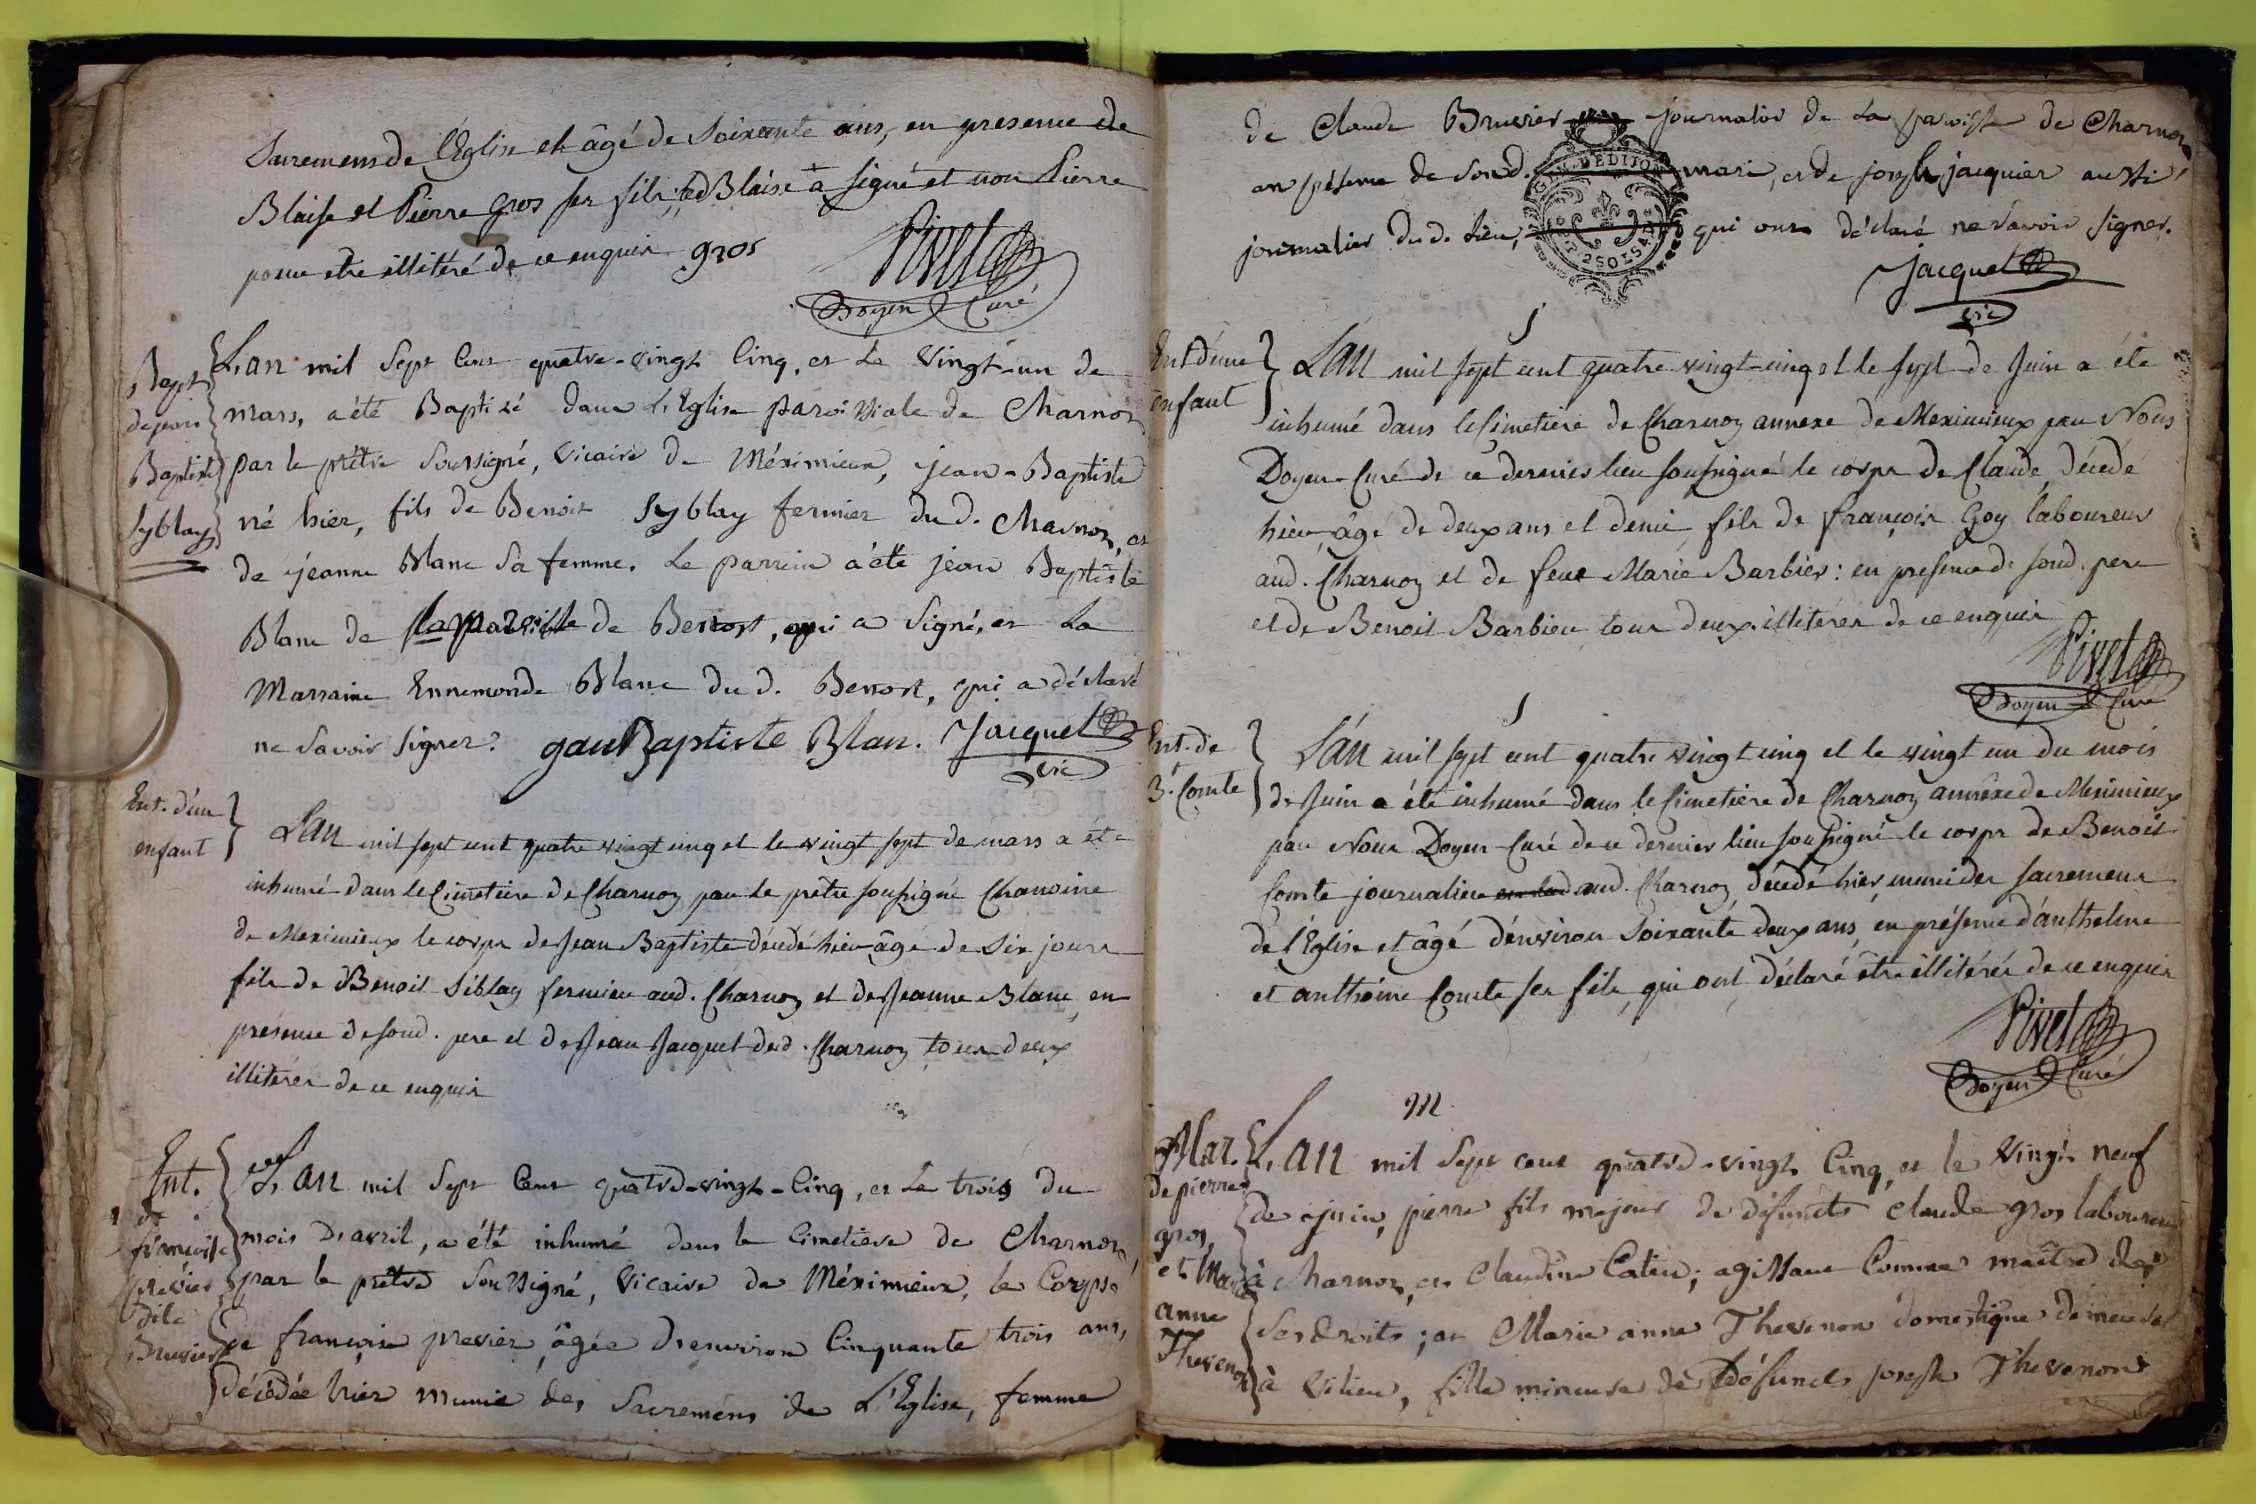 Sacremens de l'Eglise et âgé de Soixante ans, en presence de
Blaise et Pierre gros ses fils, led Blaise a signé et non Pierre
pour etre illitéré de ce enquis gros
Pivet
Doyen Curé
Bapt
de jean
Baptiste
Syblay
L'an mil Sept Cent quatre-vingt Cinq, et Le Vingt-un de
mars, a été Baptisé dans L'Eglise paroissiale de Charnoz
par le prêtre Soussigné, Vicaire de Méximieux, jean-Baptiste
né hier, fils de Benoit Syblay fermier du d. Charnoz, et
de jeanne Blanc Sa femme. Le parrein a été jean Baptiste
Blanc de la paroisse de Bettost, qui a Signé, et La
Marraine Ennemonde Blanc du d. Bettost, qui a déclaré
ne Savoir Signer. gan Baptiste Blan. Jacquet
vic
Ent. d'un
enfant
L'an mil sept cent quatre vingt cinq et le vingt sept de mars a été
inhumé dans le Cimetiere de Charnoz par le prêtre soussigné Chanoine
de Meximieux le corps de Jean Baptiste décedé hier âgé de Six jours
fils de Benoit Siblay fermier aud. Charnoz et de Jeanne Blanc, en
présence de sond. pere et de Jean Jacquet dud. Charnoz tous deux
illitérés de ce enquis
Ent.
de
francoise
previer
dite
Bruvier
L'an mil Sept Cent quatre-vingt-Cinq, et Le trois du
mois d'avril, a été inhumé dans le Cimetiere de Charnoz,
par le prêtre Soussigné, Vicaire de Méximieux, le Corps
de françoise previer, âgée d'environ Cinquante trois ans,
décédée hier munie des Sacremens de L'Eglise, femme
de Claude Bruvier journalier de La paroisse de Charnoz
en présence de Sond. mari, et de joseph jacquier aussi
journalier du d. Lieu, qui ont déclaré ne Savoir Signer.
Jacquet
vic
GEN. DE DIJON
2 SOLS 4 D
Ent d'une
enfant
S
L'an mil sept cent quatre vingt-cinq et le sept de Juin a été
inhumé dans le Cimetiere de Charnoz annexe de Meximieux par Nous
Doyen-Curé de ce dernier lieu soussigné le corps de Claude, décedé
hier âgé de deux ans et demi, fils de françois Goy laboureur
aud. Charnoz et de feue Marie Barbier: en presence de sond. pere
et de Benoit Barbier tous deux illitérés de ce enquis
Pivet
Doyen Curé
Ent. de
B. Comte
S
L'an mil sept cent quatre vingt cinq et le vingt un du mois
de Juin a été inhumé dans le Cimetiere de Charnoz annêxe de Meximieux
par Nous Doyen-Curé de ce dernier lieu soussigné le corps de Benoit
Comte journalier aud. Charnoz, décedé hier, muni des sacremens
de l'Eglise et âgé d'environ Soixante deux ans, en présence d'anthelme
et anthoine Comte ses fils, qui ont déclaré être illitérés de ce enquis
Pivet
Doyen Curé
Mar.
de pierre
gros,
et Marie
anne
Thevenon
M
L'an mil Sept cent quatre-vingt Cinq, et le Vingt neuf
de juin, pierre fils majeur de défunts Claude gros laboureur
à Charnoz, et Claudine Catin; agissant Comme maître de
Ses droits; et Marie anne Thevenon domestique demeurant
à Vilieu, fille mineure de Défunct joseph Thevenon